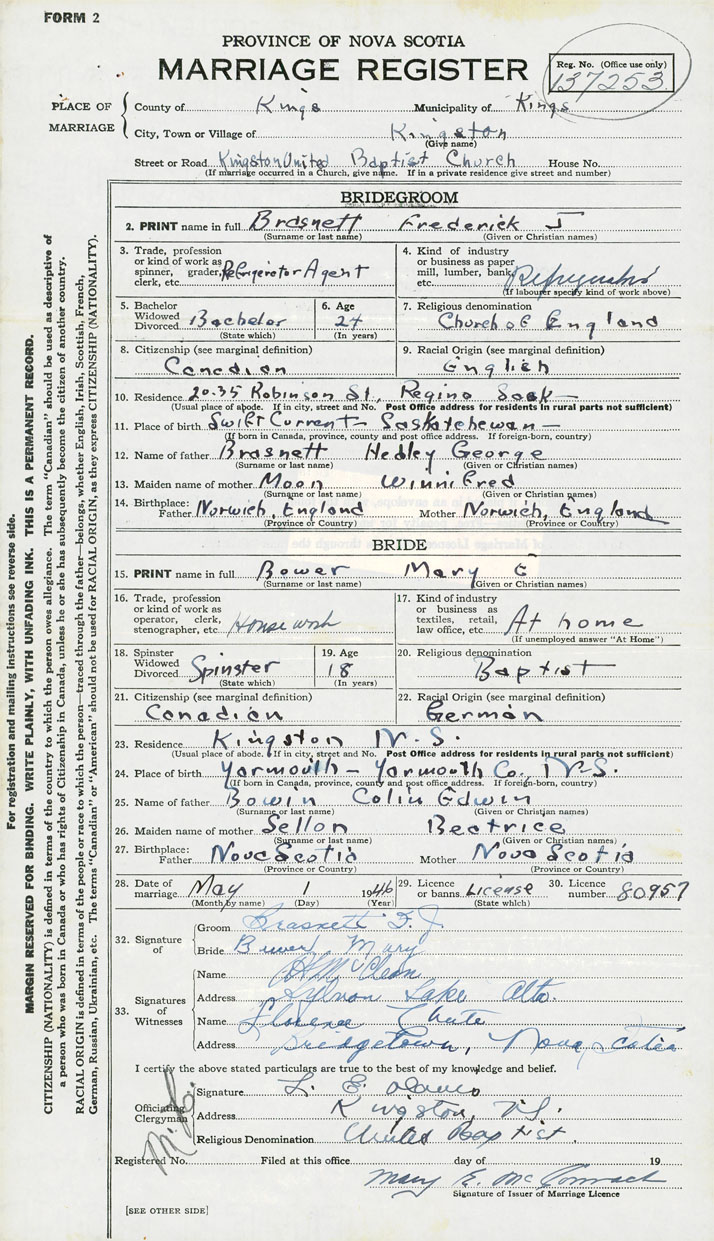 FORM 2
PROVINCE OF NOVA SCOTIA
MARRIAGE REGISTER
Reg. No. (Office use only)
137253
PLACE OF MARRIAGE
County of Kings Municipality of Kings
City, Town or Village of Kingston
(Give name)
Street or Road Kingston United Baptist Church House No.
(If marriage occurred in a Church, give name. If in a private residence give street and number)
BRIDEGROOM
2. PRINT name in full Brasnett Frederick J
(Surname or last name) (Given or Christian names)
3. Trade, profession or kind of work as spinner, grader, clerk, etc. Refrigerator Agent
4. Kind of industry or business as paper mill, lumber, bank, etc.
(If labourer specify kind of work above)
5. Bachelor Widowed Divorced Bachelor
(State which)
6. Age 24
(In years)
7. Religious denomination
Church of England
8. Citizenship (see marginal definition)
Canadian
9. Racial Origin (see marginal definition)
English
10. Residence 2035 Robinson St., Regina Sask—
(Usual place of abode. If in city, street and No. Post Office address for residents in rural parts not sufficient)
11. Place of birth Swift Current— Saskatchewan—
(If born in Canada, province, county and post office address. If foreign-born, country)
12. Name of father Brasnett Hedley George
(Surname or last name) (Given or Christian names)
13. Maiden name of mother Moon Winnifred
(Surname or last name) (Given or Christian names)
14. Birthplace: Father Norwich, England Mother Norwich, England
(Province or Country) (Province or Country)
BRIDE
15. PRINT name in full Bower Mary E
(Surname or last name) (Given or Christian names)
16. Trade, profession or kind of work as operator, clerk, stenographer, etc. House work
17. Kind of industry or business as textiles, retail, law office, etc. At home
(If unemployed answer "At Home")
18. Spinster Widowed Divorced Spinster
(State which)
19. Age 18
(In years)
20. Religious denomination
Baptist
21. Citizenship (see marginal definition)
Canadian
22. Racial Origin (see marginal definition)
German
23. Residence Kingston N.S.
(Usual place of abode. If in city, street and No. Post Office address for residents in rural parts not sufficient)
24. Place of birth Yarmouth — Yarmouth Co., N.S.
(If born in Canada, province, county and post office address. If foreign-born, country)
25. Name of father Colin Edwin
(Surname or last name) (Given or Christian names)
26. Maiden name of mother Sellon Beatrice
(Surname or last name) (Given or Christian names)
27. Birthplace: Father Nova Scotia Mother Nova Scotia
(Province or Country) (Province or Country)
28. Date of marriage May 1 1946
(Month by name) (Day) (Year)
29. Licence or banns License
(State which)
30. Licence number 80957
32. Signature of
Groom Brasnett F. J.
Bride Bower Mary
33. Signatures of Witnesses
Name McClean
Address Sylvan Lake Alta.
Name Florence Chute
Address Bridgetown, Nova Scotia
I certify the above stated particulars are true to the best of my knowledge and belief.
Officiating Clergyman
Signature L. E.
Address Kingston, N.S.
Religious Denomination United Baptist.
Registered No. Filed at this office day of 19
Mary E. McCormack
Signature of Issuer of Marriage Licence
[SEE OTHER SIDE]
For registration and mailing instructions see reverse side.
MARGIN RESERVED FOR BINDING. WRITE PLAINLY, WITH UNFADING INK. THIS IS A PERMANENT RECORD.
CITIZENSHIP (NATIONALITY) is defined in terms of the country to which the person owes allegiance. The term "Canadian" should be used as descriptive of
a person who was born in Canada or who has rights of Citizenship in Canada, unless he or she has subsequently become the citizen of another country.
RACIAL ORIGIN is defined in terms of the people or race to which the person—traced through the father—belongs, whether English, Irish, Scottish, French,
German, Russian, Ukrainian, etc. The terms "Canadian" or "American" should not be used for RACIAL ORIGIN, as they express CITIZENSHIP (NATIONALITY).